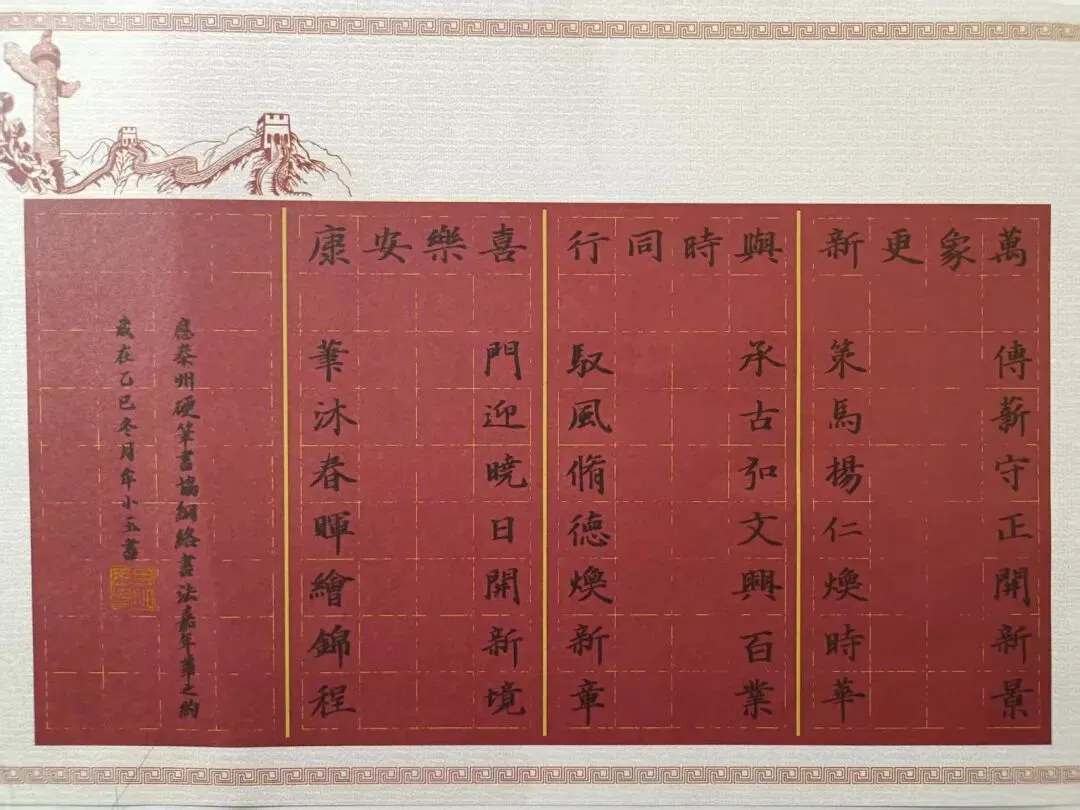 萬象更新
傳薪守正開新景
策馬揚仁煥時華
與時同行
承古弘文興百業
馭風脩德煥新章
喜樂安康
門迎曉日開新境
筆沐春暉繪錦程
應泰州硬筆書協網絡書法嘉年華之約
歲在乙巳冬月小玉書